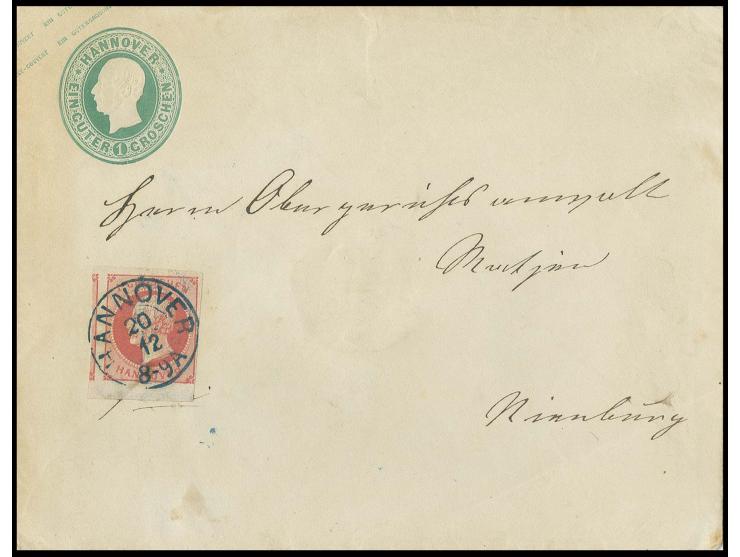 EIN GUTERGROSCHEN
HANNOVER
EIN GUTER GROSCHEN
1
Herrn Obergerichtsanwalt
Nienburg
HANNOVER
20
12
8-9A
HANNOVER